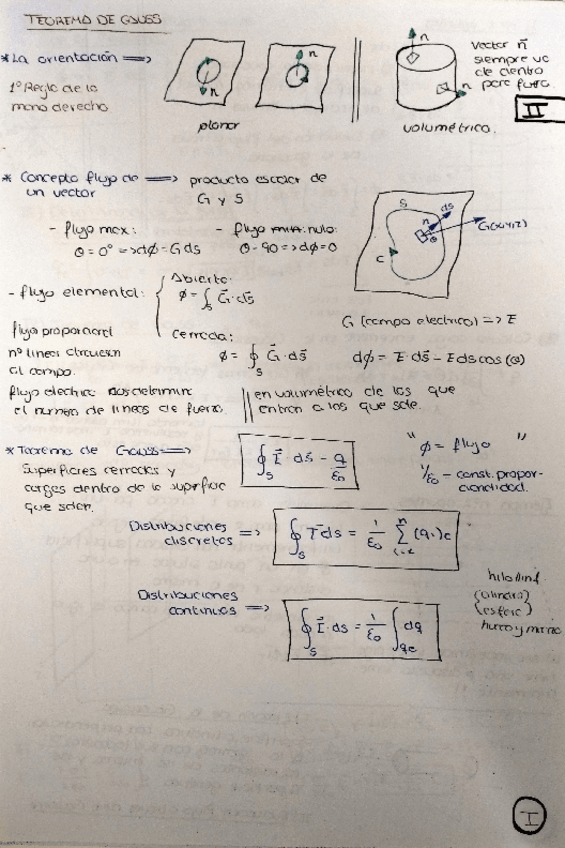 TEOREMA DE GAUSS
* La orientación ⟹
1º Regla de la
mano derecha
n
n
planar
n
n
volumétrica.
vector n⃗
siempre va
de dentro
para fuera.
II
* Concepto flujo de ⟹ producto escalar de
un vector
G y S
- flujo max:
θ = 0° => dϕ = G ds
- flujo nulo:
θ - 90 => dϕ = 0
S
ds
n
θ
G(x,y,z)
C
- flujo elemental:
Abierta:
ϕ = ∫S G⃗ · ds⃗
cerrada:
ϕ = ∮S G⃗ · ds⃗
flujo proporcional
nº lineas circulan
al campo.
G (campo electrico) => E
dϕ = E · ds⃗ - E ds cos (θ)
flujo electrico nos determina
el numero de lineas de fuerza.
en volumétrico de las que
entran a las que sale.
* Teorema de Gauss ⟹
Superficies cerradas y
cargas dentro de la superficie
que salen.
∮S E⃗ · ds⃗ = q/ε₀
" ϕ = flujo "
1/ε₀ - const. propor-
cionalidad.
Distribuciones ⟹
discretas
∮S E⃗ ds = 1/ε₀ Σ (qi)e
Distribuciones
continuas ⟹
∮S E⃗ · ds = 1/ε₀ ∫qe dq
hilo inf.
(cilindro)
(esfera)
hueco y macizo
I